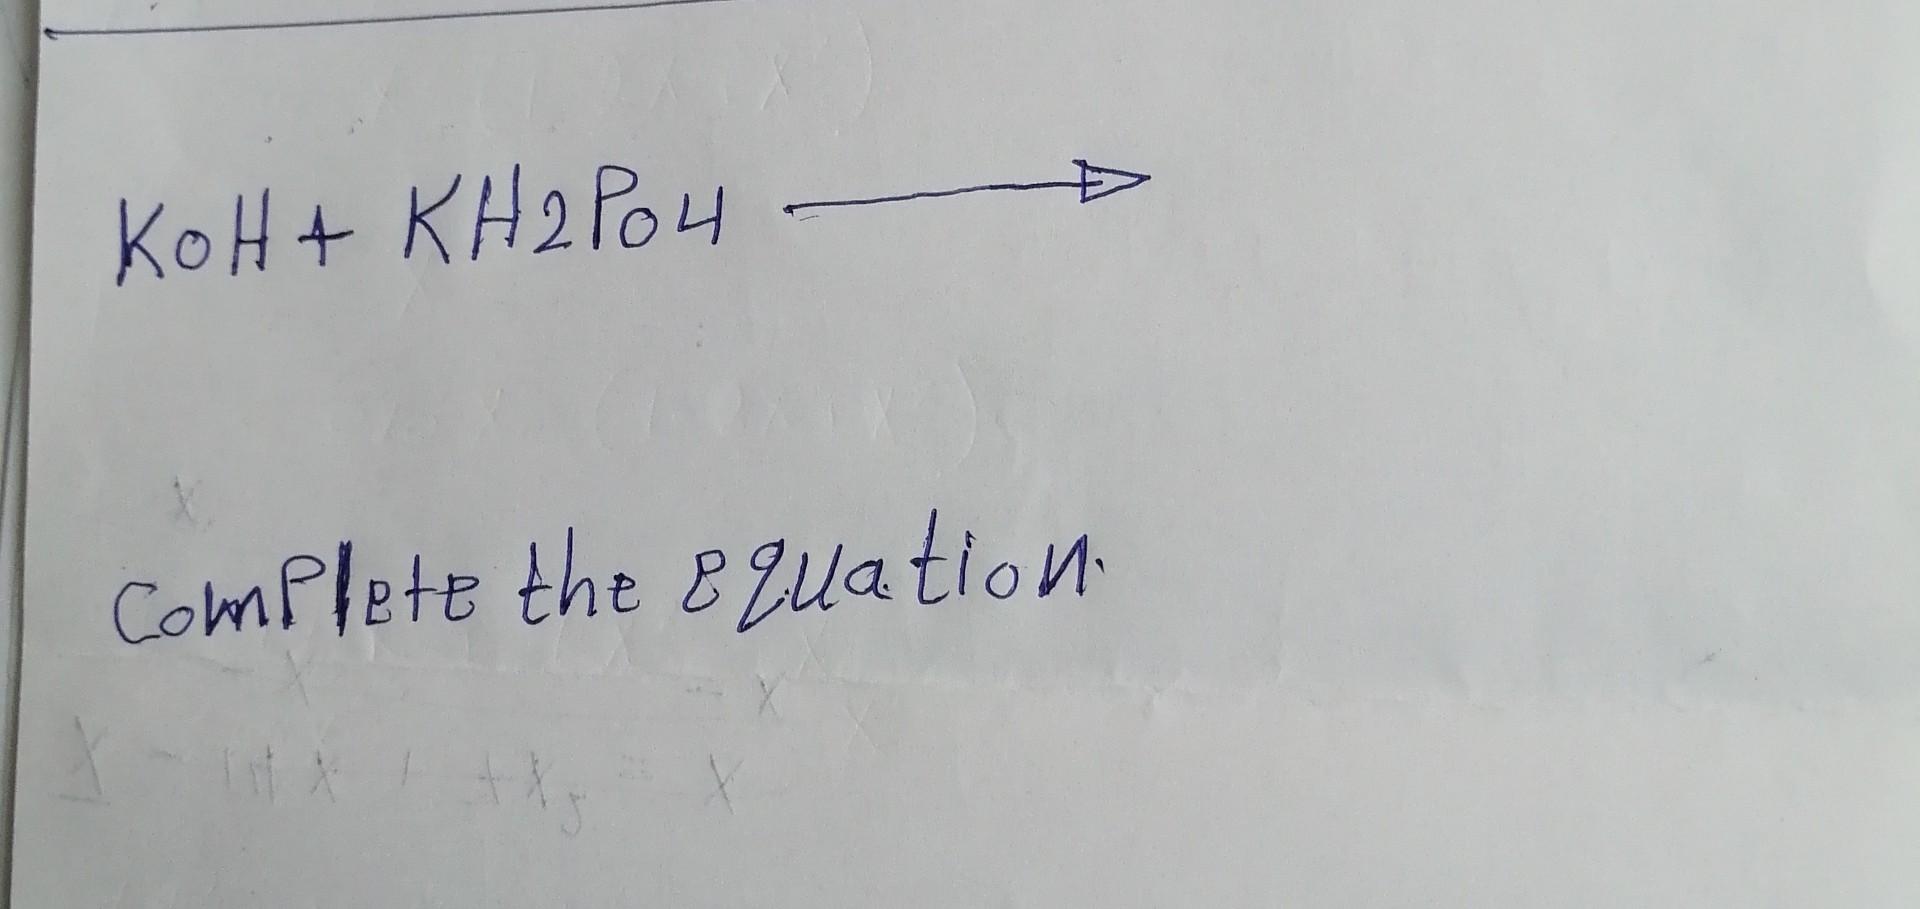 KoH + KH2Po4 ⟶
complete the equation.